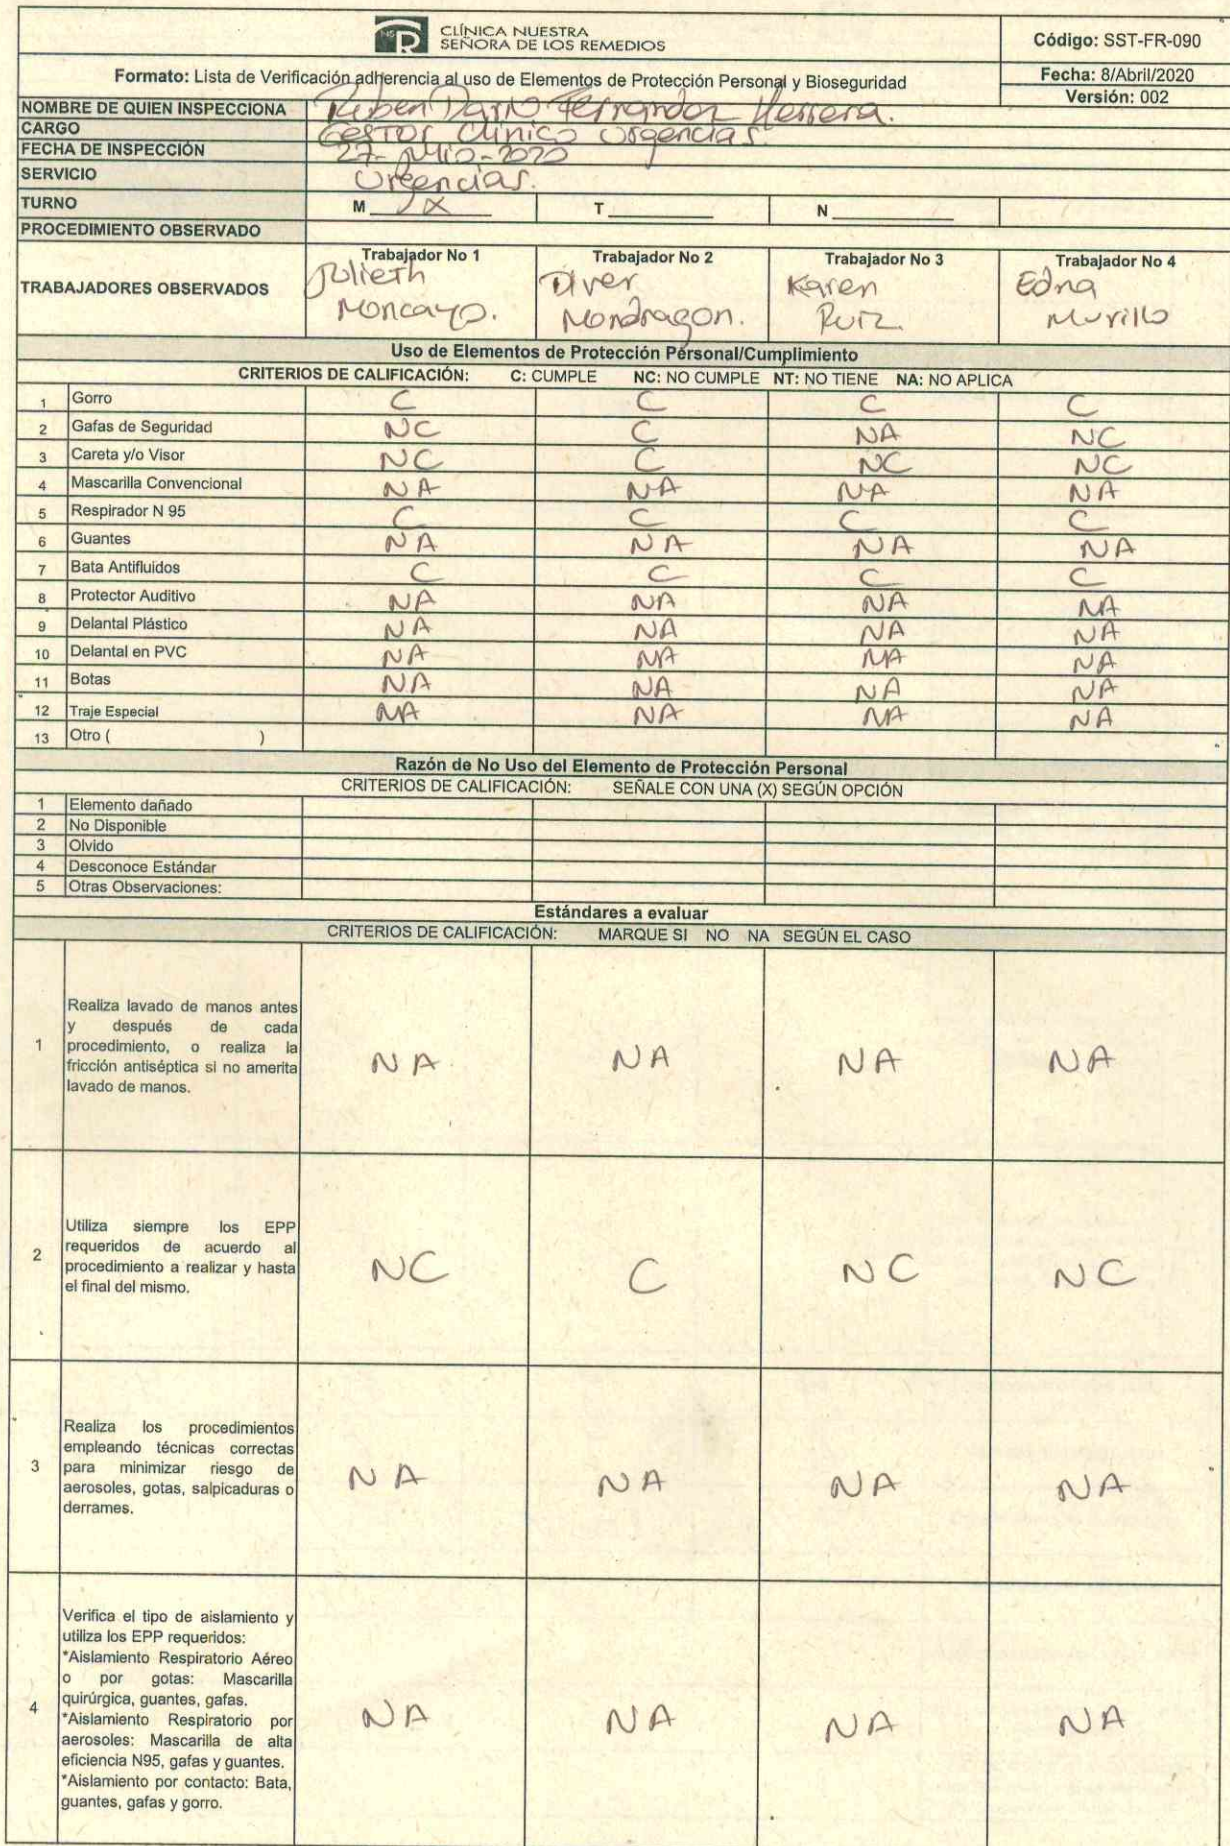 CLÍNICA NUESTRA
SEÑORA DE LOS REMEDIOS
Código: SST-FR-090
Formato: Lista de Verificación adherencia al uso de Elementos de Protección Personal y Bioseguridad
Fecha: 8/Abril/2020
Versión: 002
NOMBRE DE QUIEN INSPECCIONA Ruben Dario Fernandez Herrera.
CARGO Gestor Clinico Urgencias.
FECHA DE INSPECCIÓN 27-Julio-2020
SERVICIO Urgencias.
TURNO M X T N
PROCEDIMIENTO OBSERVADO
TRABAJADORES OBSERVADOS
Trabajador No 1 Trabajador No 2 Trabajador No 3 Trabajador No 4
Julieth Diver Karen Edna
Moncayo. Mondragon. Ruiz. Murillo
Uso de Elementos de Protección Personal/Cumplimiento
CRITERIOS DE CALIFICACIÓN: C: CUMPLE NC: NO CUMPLE NT: NO TIENE NA: NO APLICA
1 Gorro C C C C
2 Gafas de Seguridad NC C NA NC
3 Careta y/o Visor NC C NC NC
4 Mascarilla Convencional NA NA NA NA
5 Respirador N 95 C C C C
6 Guantes NA NA NA NA
7 Bata Antifluidos C C C C
8 Protector Auditivo NA NA NA NA
9 Delantal Plástico NA NA NA NA
10 Delantal en PVC NA NA NA NA
11 Botas NA NA NA NA
12 Traje Especial NA NA NA NA
13 Otro ( )
Razón de No Uso del Elemento de Protección Personal
CRITERIOS DE CALIFICACIÓN: SEÑALE CON UNA (X) SEGÚN OPCIÓN
1 Elemento dañado
2 No Disponible
3 Olvido
4 Desconoce Estándar
5 Otras Observaciones:
Estándares a evaluar
CRITERIOS DE CALIFICACIÓN: MARQUE SI NO NA SEGÚN EL CASO
1
Realiza lavado de manos antes
y después de cada
procedimiento, o realiza la
fricción antiséptica si no amerita
lavado de manos.
NA NA NA NA
2
Utiliza siempre los EPP
requeridos de acuerdo al
procedimiento a realizar y hasta
el final del mismo.
NC C NC NC
3
Realiza los procedimientos
empleando técnicas correctas
para minimizar riesgo de
aerosoles, gotas, salpicaduras o
derrames.
NA NA NA NA
4
Verifica el tipo de aislamiento y
utiliza los EPP requeridos:
*Aislamiento Respiratorio Aéreo
o por gotas: Mascarilla
quirúrgica, guantes, gafas.
*Aislamiento Respiratorio por
aerosoles: Mascarilla de alta
eficiencia N95, gafas y guantes.
*Aislamiento por contacto: Bata,
guantes, gafas y gorro.
NA NA NA NA